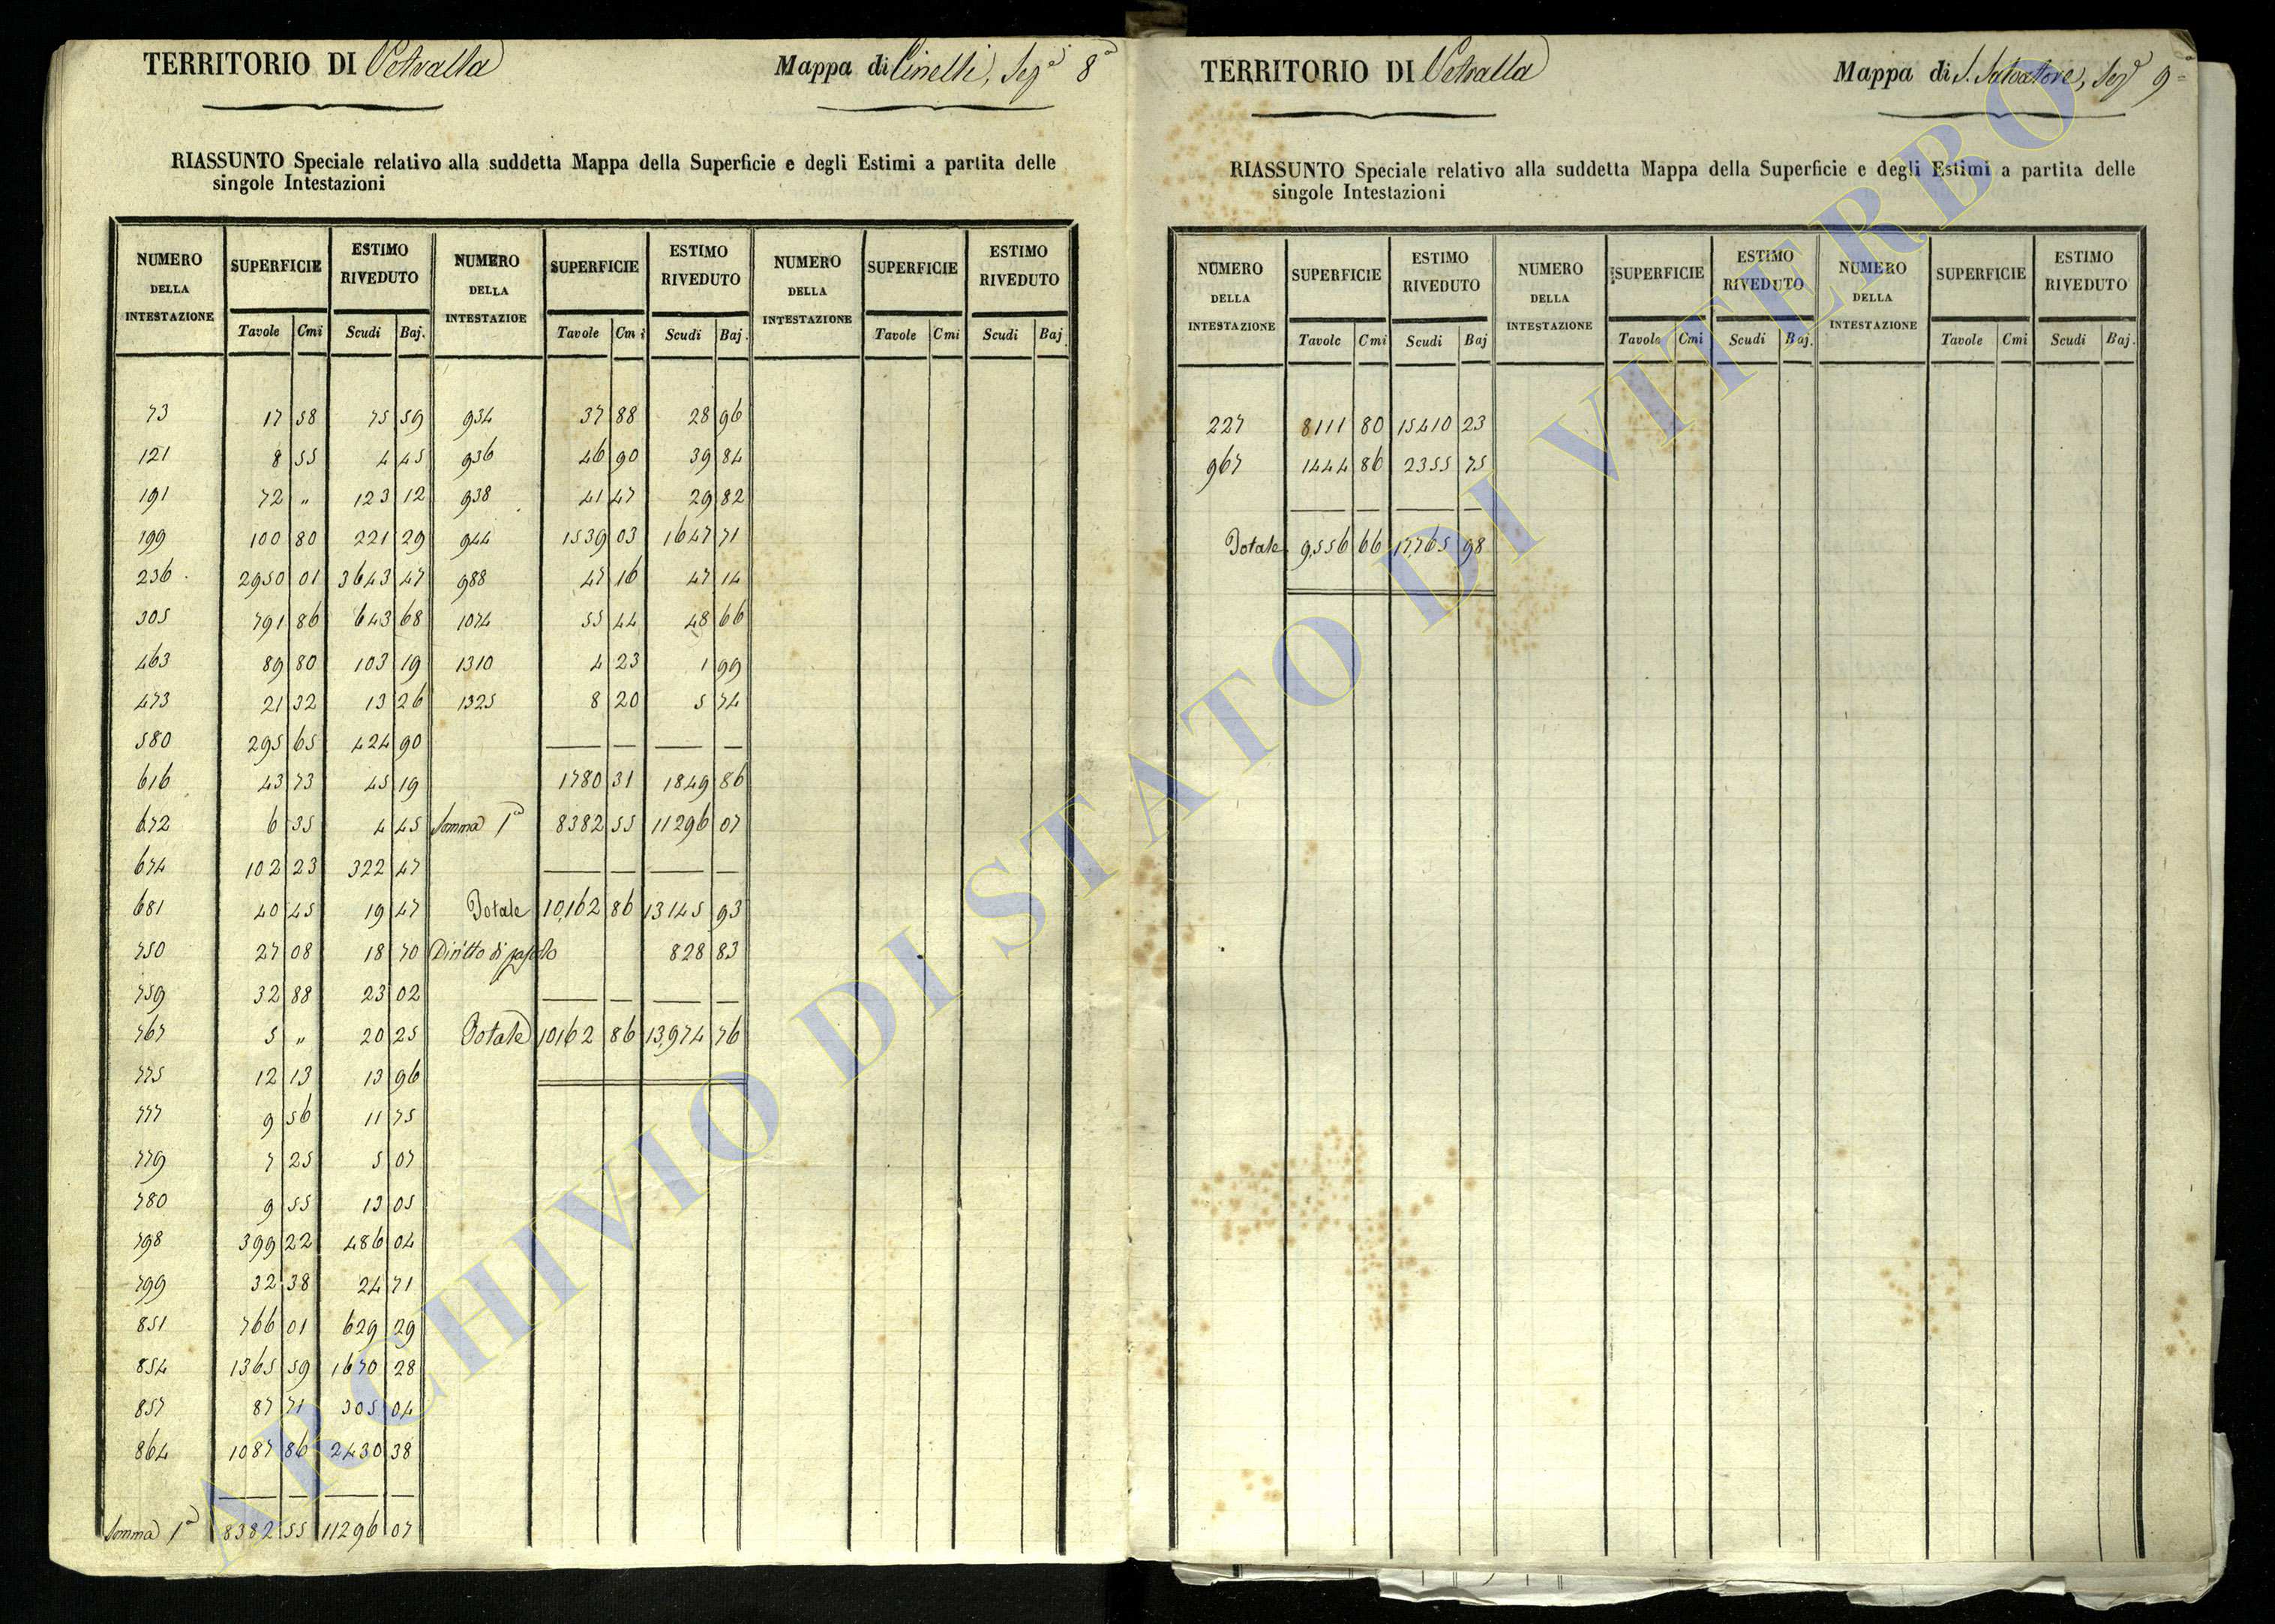 TERRITORIO DI Vetralla
Mappa di Cinelli, Sez.a 8a
RIASSUNTO Speciale relativo alla suddetta Mappa della Superficie e degli Estimi a partita delle
singole Intestazioni
NUMERO DELLA INTESTAZIONE SUPERFICIE ESTIMO RIVEDUTO NUMERO DELLA INTESTAZIOE SUPERFICIE ESTIMO RIVEDUTO NUMERO DELLA INTESTAZIONE SUPERFICIE ESTIMO RIVEDUTO
Tavole Cmi Scudi Baj. Tavole Cmi Scudi Baj. Tavole Cmi Scudi Baj
73 17 58 75 59 934 37 88 28 96
121 8 55 4 45 936 46 90 39 84
191 72 „ 123 12 938 41 47 29 82
199 100 80 221 29 944 1539 03 1647 71
236 2950 01 3643 47 988 47 16 47 14
305 791 86 643 68 1074 55 44 48 66
463 89 80 103 19 1310 4 23 1 99
473 21 32 13 26 1325 8 20 5 74
580 295 65 424 90
616 43 73 45 19 1780 31 1849 86
672 6 35 4 45 Somma 1a 8382 55 11296 07
674 102 23 322 47
681 40 45 19 47 Totale 10,162 86 13145 93
750 27 08 18 70 Diritto di pascolo 828 83
759 32 88 23 02
767 5 „ 20 25 Totale 10162 86 13,974 76
775 12 13 13 96
777 9 56 11 75
779 7 25 5 07
780 9 55 13 05
798 399 22 486 04
799 32 38 24 71
851 766 01 629 29
854 1365 59 1670 28
857 87 71 305 04
864 1087 86 2430 38
Somma 1a 8382 55 11296 07
TERRITORIO DI Vetralla
Mappa di S. Salvatore, Sez.a 9a
RIASSUNTO Speciale relativo alla suddetta Mappa della Superficie e degli Estimi a partita delle
singole Intestazioni
NUMERO DELLA INTESTAZIONE SUPERFICIE ESTIMO RIVEDUTO NUMERO DELLA INTESTAZIONE SUPERFICIE ESTIMO RIVEDUTO NUMERO DELLA INTESTAZIONE SUPERFICIE ESTIMO RIVEDUTO
Tavole Cmi Scudi Baj Tavole Cmi Scudi Baj. Tavole Cmi Scudi Baj.
227 8111 80 15410 23
967 1444 86 2355 75
Totale 9,556 66 17,765 98
ARCHIVIO DI STATO DI VITERBO